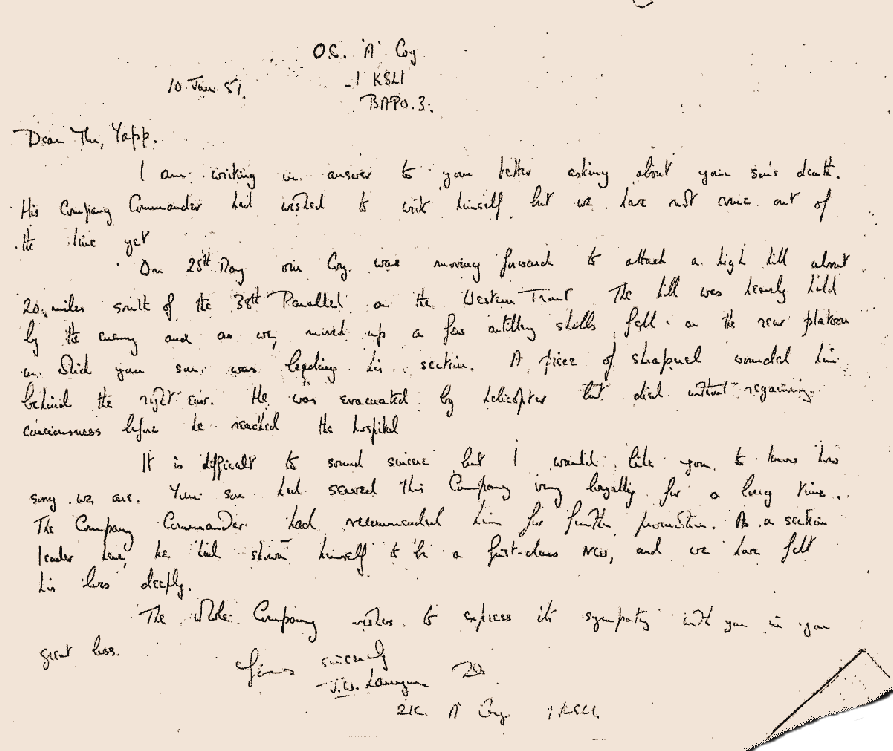 O.C. 'A' Coy
1 KSLI
10 June 51.
BAPO. 3.
Dear Mr, Yapp.
I am writing in answer to your letter asking about your son's death.
His Company Commander had wished to write himself but we have not come out of
the line yet
On 28th May our Coy. was moving forward to attack a high hill about
20 miles south of the 38th Parallel on the Western Front The hill was heavily held
by the enemy and as we moved up a few artillery shells fell on the rear platoon
in which your son was leading his section. A piece of shrapnel wounded him
behind the right ear. He was evacuated by helicopter but died without regaining
consciousness before he reached the hospital
It is difficult to sound sincere but I would like you to know how
sorry we are. Your son had served this Company very loyally for a long time.
The Company Commander had recommended him for further promotion. As a section
leader here, he had shown himself to be a first-class NCO, and we have felt
his loss deeply.
The whole Company wishes to express its sympathy with you in your
great loss.
Yours sincerely
2IC. 'A' Coy. 1 KSLI.